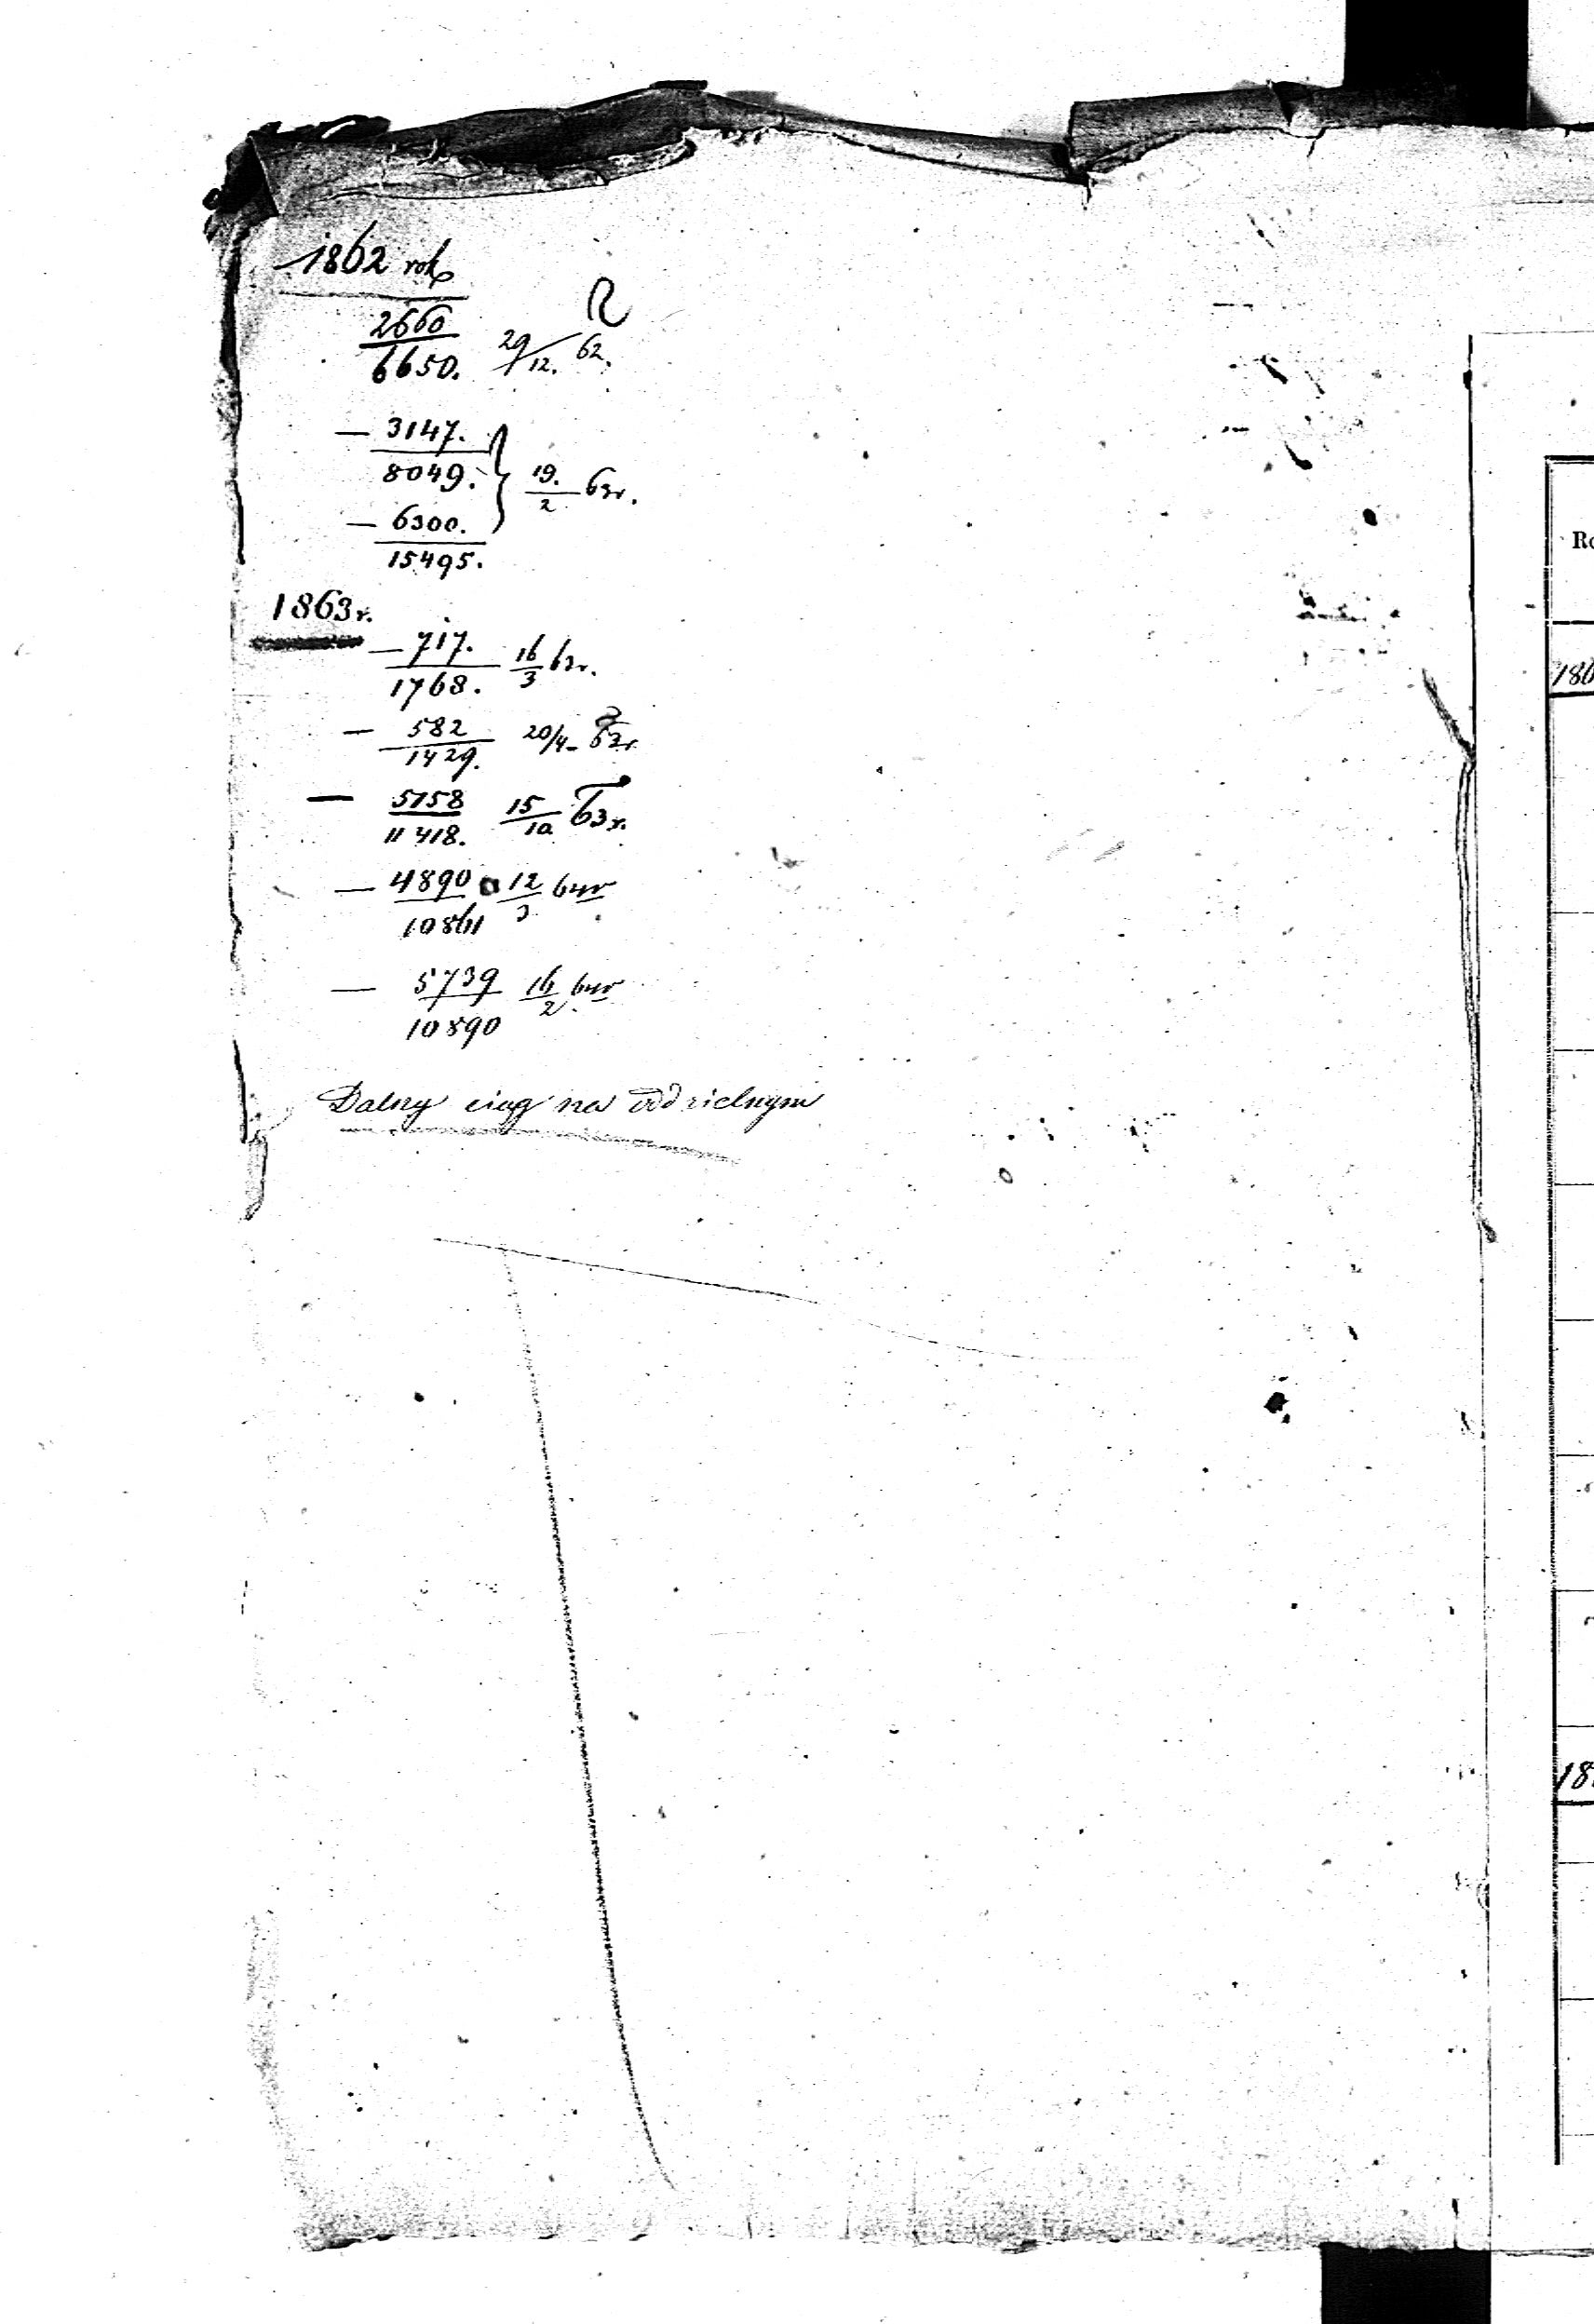 1862 rok
2660
6650. 29/12. 62.
— 3147.
8049.
19./2 63r.
— 6300.
15495.
1863 r.
— 717. 16/3 63r.
1768.
— 582 20/4 - 63r
1429.
— 5158 15/10 63r.
11418.
— 4890 12/3 64r
10861
— 5739 16/2 64r
10890
Dalszy ciąg na oddzielnym
Ro
186
18